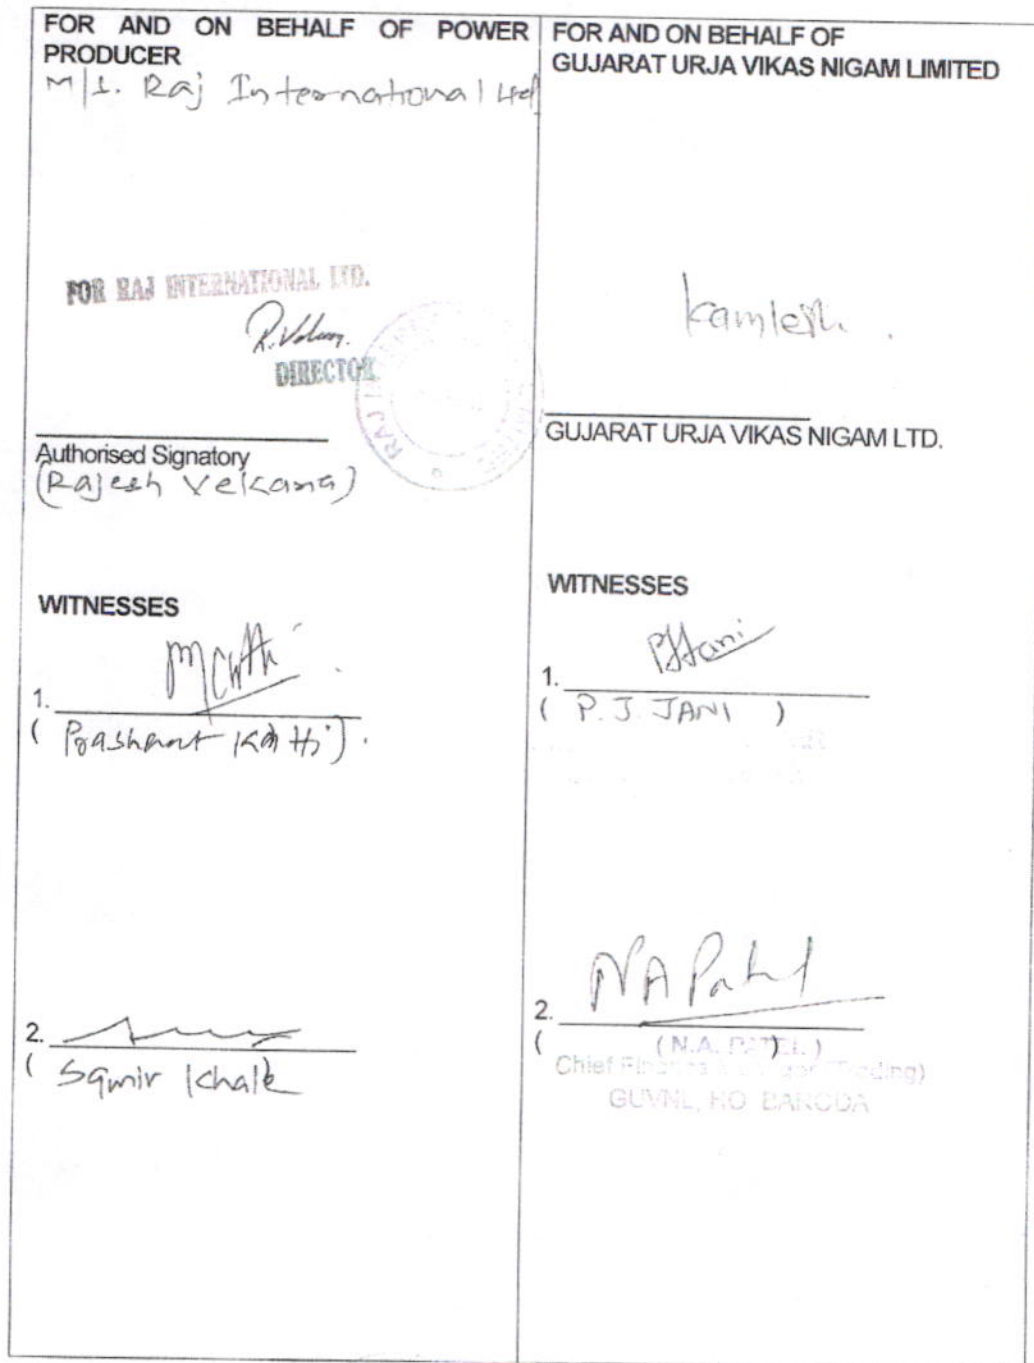 FOR AND ON BEHALF OF POWER
PRODUCER
M/s. Raj International Ltd
FOR RAJ INTERNATIONAL LTD.
DIRECTOR
RAJ
Authorised Signatory
(Rajesh
WITNESSES
1.
( Prashant Kathi ).
2.
( Samir Khale
FOR AND ON BEHALF OF
GUJARAT URJA VIKAS NIGAM LIMITED
Kamlesh.
GUJARAT URJA VIKAS NIGAM LTD.
WITNESSES
PJJani
1.
( P. J. JANI )
NA Patel
2.
( (N.A. PATEL) )
Chief Finance Manager (Trading)
GUVNL, HO BARODA